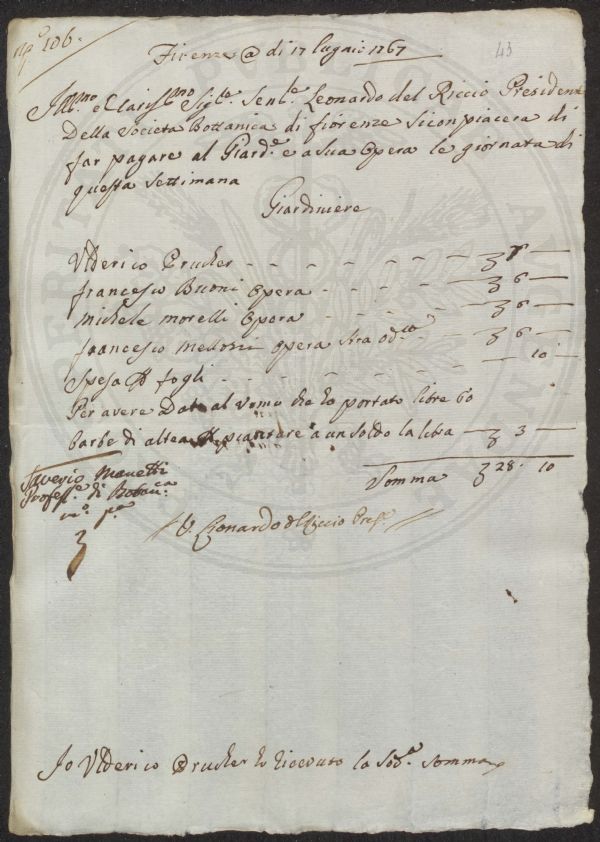 nº 106.
43
Firenze @ di 17 luglio 1767
Ill.mo e Clariss.mo Sig.re Sen.le Leonardo del Riccio President
Della Societa Bottanica di fiorenze si conpiacera di
far pagare al Giard.e e a sua Opera le giornata di
questa settimana
Giardiniere
Vlderico Prucker - - - - - - 7 —
francesco Buoni Opera - - - - 6 —
Michele morelli Opera - - - - 6 —
francesco Mellozzi opera stra od.rio - - 6 —
Spesa fogli - - - - - - 10 —
Per avere Dato al vomo che ho portato libre 60
barbe di altea piantare a un soldo la libra — 3 —
Somma 28. 10
Saverio Manetti
Profess.e di Botan.ca
m.o p.a
V. Lionardo d Riccio Pres.
Io Vlderico Prucker ho riceuuto la Sod.a Somma